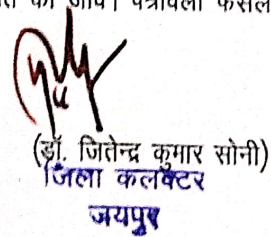 की जावे। पत्रावली फैसल
(डॉ. जितेन्द्र कुमार सोनी)
जिला कलक्टर
जयपुर